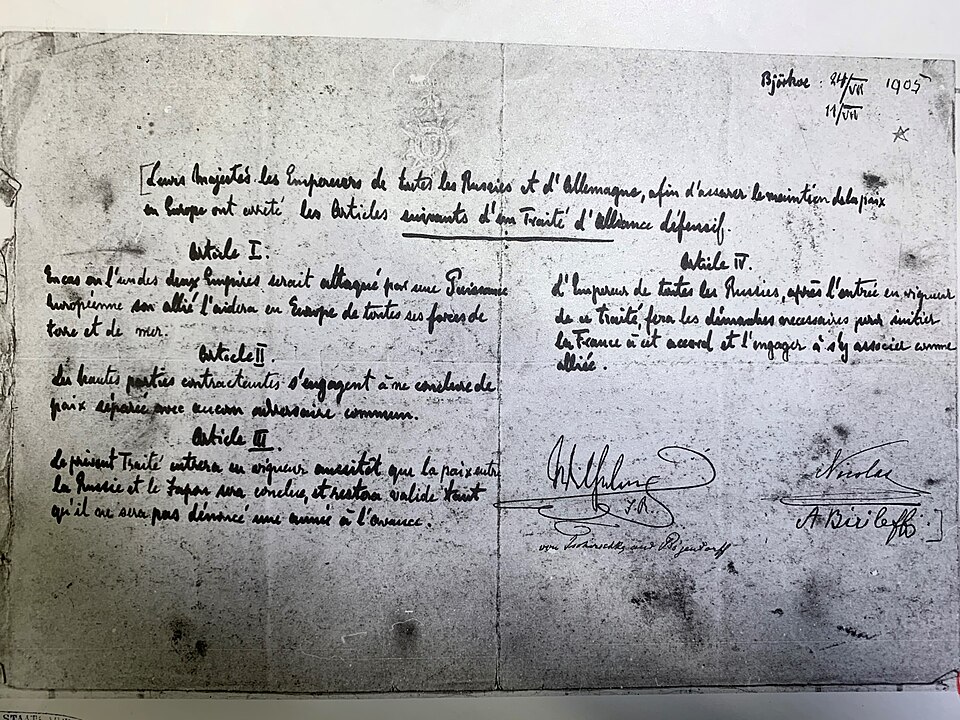 Björkoe: 24/VII 1905
11/VII
Leurs Majestés les Empereurs de toutes les Russies et d'Allemagne, afin d'assurer le maintien de la paix
en Europe ont arrêté les Articles suivants d'un Traité d'Alliance défensif.
Article I.
En cas ou l'un des deux Empires serait attaqué par une Puissance
Européenne son allié l'aidera en Europe de toutes ses forces de
terre et de mer.
Article II.
Les hautes parties contractantes s'engagent à ne conclure de
paix séparée avec aucun adversaire commun.
Article III
Le présent Traité entrera en vigueur aussitôt que la paix entre
la Russie et le Japon sera conclue, et restera valide tant
qu'il ne sera pas dénoncé une année à l'avance.
Article IV.
L'Empereur de toutes les Russies, après l'entrée en vigueur
de ce traité, fera les démarches necessaires pour initier
la France à cet accord et l'engager à s'y associer comme
alliée.
Wilhelm
I.R.
von Tschirschky und Bögendorff
Nicolas
A Birileff